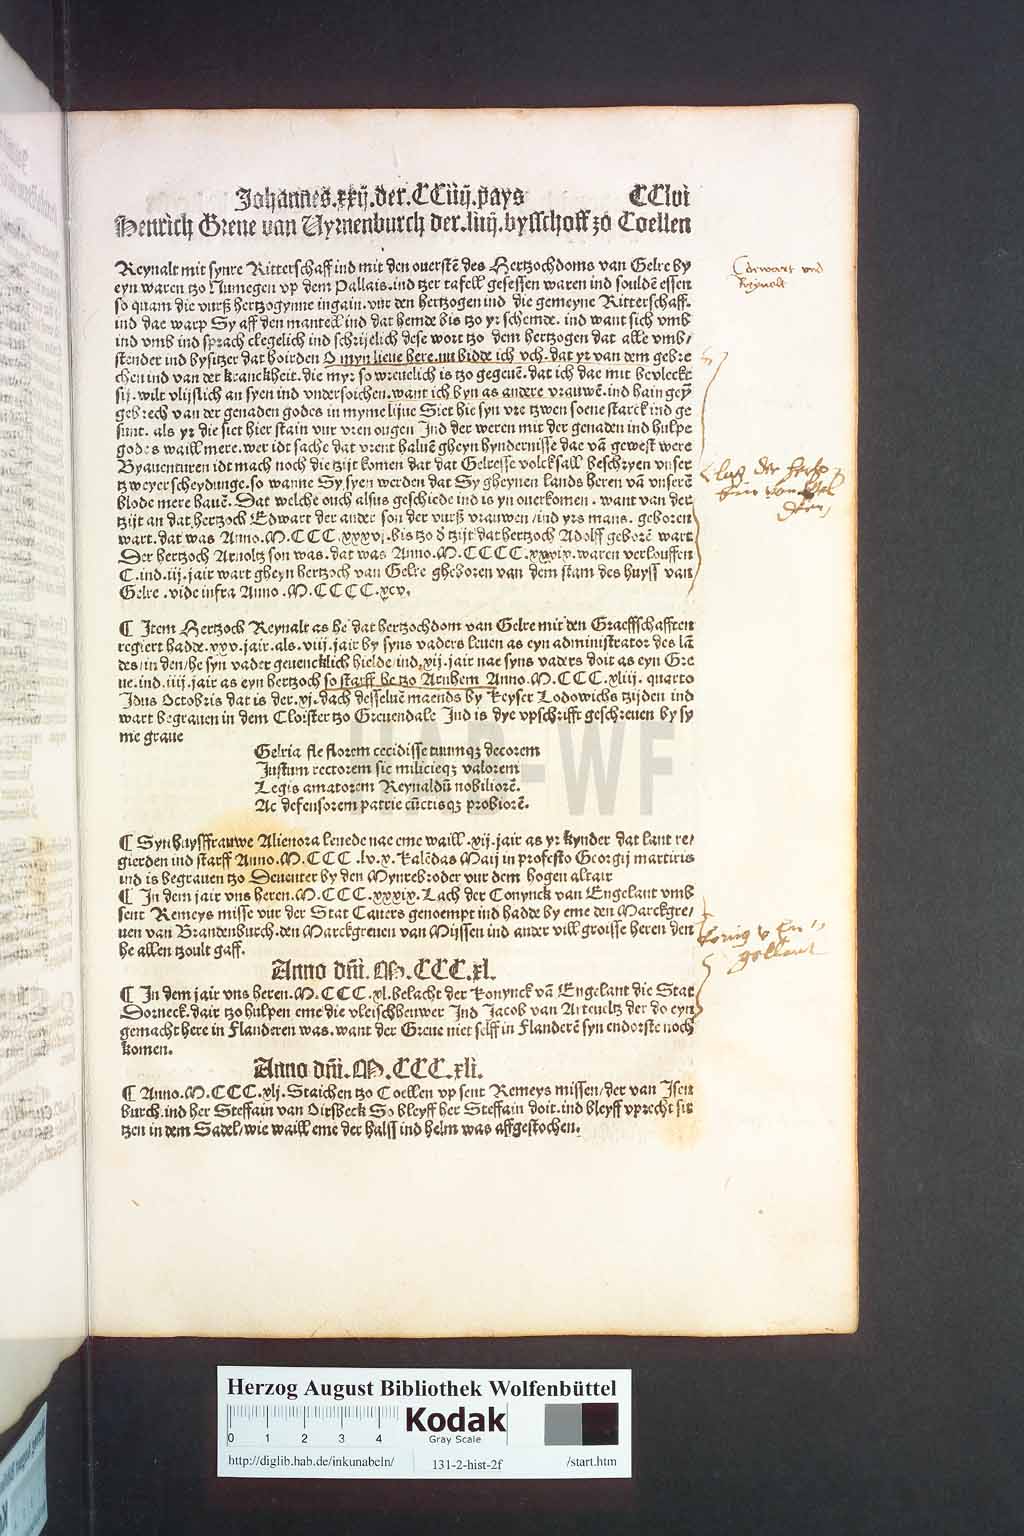 Johannes.xxij.der.CCiiij.pays CClvi
Henrich Greue van Vyrnenburch der.liiij.bysschoff zo Coellen
Reynalt mit synre Ritterschaff ind mit den ouerstē des Hertzochdoms van Gelre by
eyn waren tzo Numegen vp dem Pallais.ind tzer tafell gesessen waren ind souldē essen
so quam die vurß hertzogynne ingain.vur den hertzogen ind die gemeyne Ritterschaff.
ind dae warp Sy aff den mantell ind dat hemde bis tzo yr schemde. ind want sich vmb
ind vmb ind sprach clegelich ind schrijelich dese wort tzo dem hertzogen dat alle vmb/
stender ind bysitzer dat hoirden O myn lieue here.nu bidde ich vch.dat yr van dem gebre
chen ind van der kranckheit.die myr so wreuelich is tzo gegeuē.dat ich dae mit bevleckt
sij.wilt vlijslich an syen ind vndersoichen.want ich byn as andere vrauwē.ind hain geȳ
gebrech van der genaden godes in myme lijue Siet hie syn vre tzwen soene starck ind ge
sunt. als yr die siet hier stain vur vren ougen Ind der weren mit der genaden ind hulpe
godes waill mere.wer idt sache dat vrent haluē gheyn hyndernisse dae vā gewest were
By auenturen idt mach noch die tzijt komen dat dat Gelresse volck sall beschryen vnser
tzweyer scheydunge.so wanne Sy syen werden dat Sy gheynen lands heren vā vnserē
blode mere hauē.Dat welche ouch alsus geschiede ind is yn ouerkomen.want van der
tzijt an dat hertzoch Edwart der ander son der vurß vrauwen/ind yrs mans. geboren
wart.dat was Anno.M.CCC.xxxvj.bis tzo d tzijt dat hertzoch Adolff geborē wart
Der hertzoch Arnoltz son was.dat was Anno.M.CCCC.xxxix.waren verlouffen
C.ind.iij.jair wart gheyn hertzoch van Gelre gheboren van dem stam des huyss van
Gelre.vide infra Anno.M.CCCC.xcv.
¶ Item Hertzoch Reynalt as he dat hertzochdom van Gelre mit den Graeffschafften
regiert hadde.xxv.jair.als.viij.jair by syns vaders leuen as eyn administrator des lā
des in den/he syn vader geuencklich hielde ind.xij.jair nae syns vaders doit as eyn Gre
ue.ind.iiij.jair as eyn hertzoch so starff he tzo Arnhem Anno.M.CCC.xliij. quarto
Idus Octobris dat is der.xj.dach desseluē maends by Keyser Lodowichs tzijden ind
wart begrauen in dem Cloister tzo Greuendale Ind is dye vpschrifft geschreuen by sy
me graue
Gelria fle florem cecidisse tuumqz decorem
Iustum rectorem sic milicieqz valorem
Legis amatorem Reynaldū nobiliorē.
Ac defensorem patrie cūctisqz probiorē.
¶ Syn huysffrauwe Alienora leuede nae eme waill.xij.jair as yr kynder dat lant re/
gierden ind starff Anno.M.CCC.lv.x.Kalēdas Maij in profesto Georgij martiris
ind is begrauen tzo Deuenter by den Mynrebroder vur dem hogen altair
¶ In dem jair vns heren.M.CCC.xxxix.Lach der Conynck van Engelant vmb
sent Remeys misse vur der Stat Camers genoempt ind hadde by eme den Marckgre/
uen van Brandenburch.den Marckgreuen van Mijssen ind ander vill groisse heren den
he allen tzoult gaff.
Anno dñi.M.CCC.xl.
¶ In dem jair vns heren.M.CCC.xl.belacht der Konynck vā Engelant die Stat
Dorneck.dair tzo hulpen eme die vleischheuwer Ind Jacob van Arteueltz der do eyn
gemacht here in Flanderen was.want der Greue niet selff in Flanderē syn endorste noch
komen.
Anno dñi.M.CCC.xli.
¶ Anno.M.CCC.xlj.Staichen tzo Coellen vp sent Remeys missen/der van Isen
burch.ind her Steffain van Oirsbeck So bleyff her Steffain doit.ind bleyff vprecht sit
tzen in dem Sadel/wie waill eme der halss ind helm was affgestochen.
Edewart vnd
Reynalt
Clag der hertzo
gin von Gel
dren
König v En
gellant
HAB-WF
Herzog August Bibliothek Wolfenbüttel
0 1 2 3 4
Kodak
Gray Scale
http://diglib.hab.de/inkunabeln/ 131-2-hist-2f /start.htm